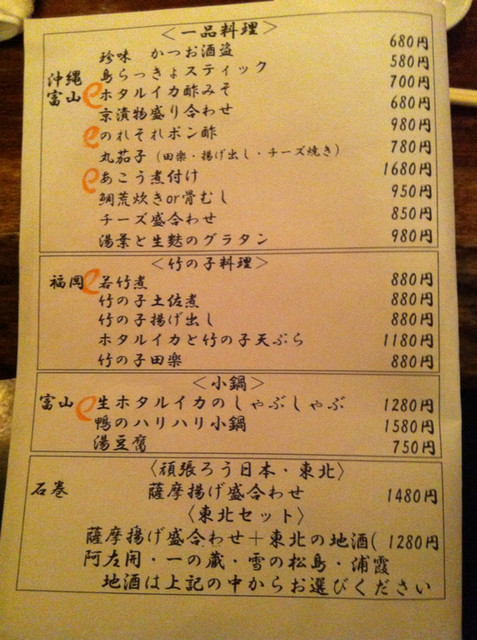 <一品料理>
珍味 かつお酒盗 680円
沖縄 島らっきょスティック 580円
富山 ホタルイカ酢みそ 700円
京漬物盛り合わせ 680円
のれそれポン酢 980円
丸茄子（田楽・揚げ出し・チーズ焼き） 780円
あこう煮付け 1680円
鯛荒炊きor骨むし 950円
チーズ盛合わせ 850円
湯葉と生麩のグラタン 980円
<竹の子料理>
福岡 若竹煮 880円
竹の子土佐煮 880円
竹の子揚げ出し 880円
ホタルイカと竹の子天ぷら 1180円
竹の子田楽 880円
<小鍋>
富山 生ホタルイカのしゃぶしゃぶ 1280円
鴨のハリハリ小鍋 1580円
湯豆腐 750円
〈頑張ろう日本・東北〉
石巻 薩摩揚げ盛合わせ 1480円
〈東北セット〉
薩摩揚げ盛合わせ＋東北の地酒( 1280円
阿左開・一の蔵・雪の松島・浦霞
地酒は上記の中からお選びください